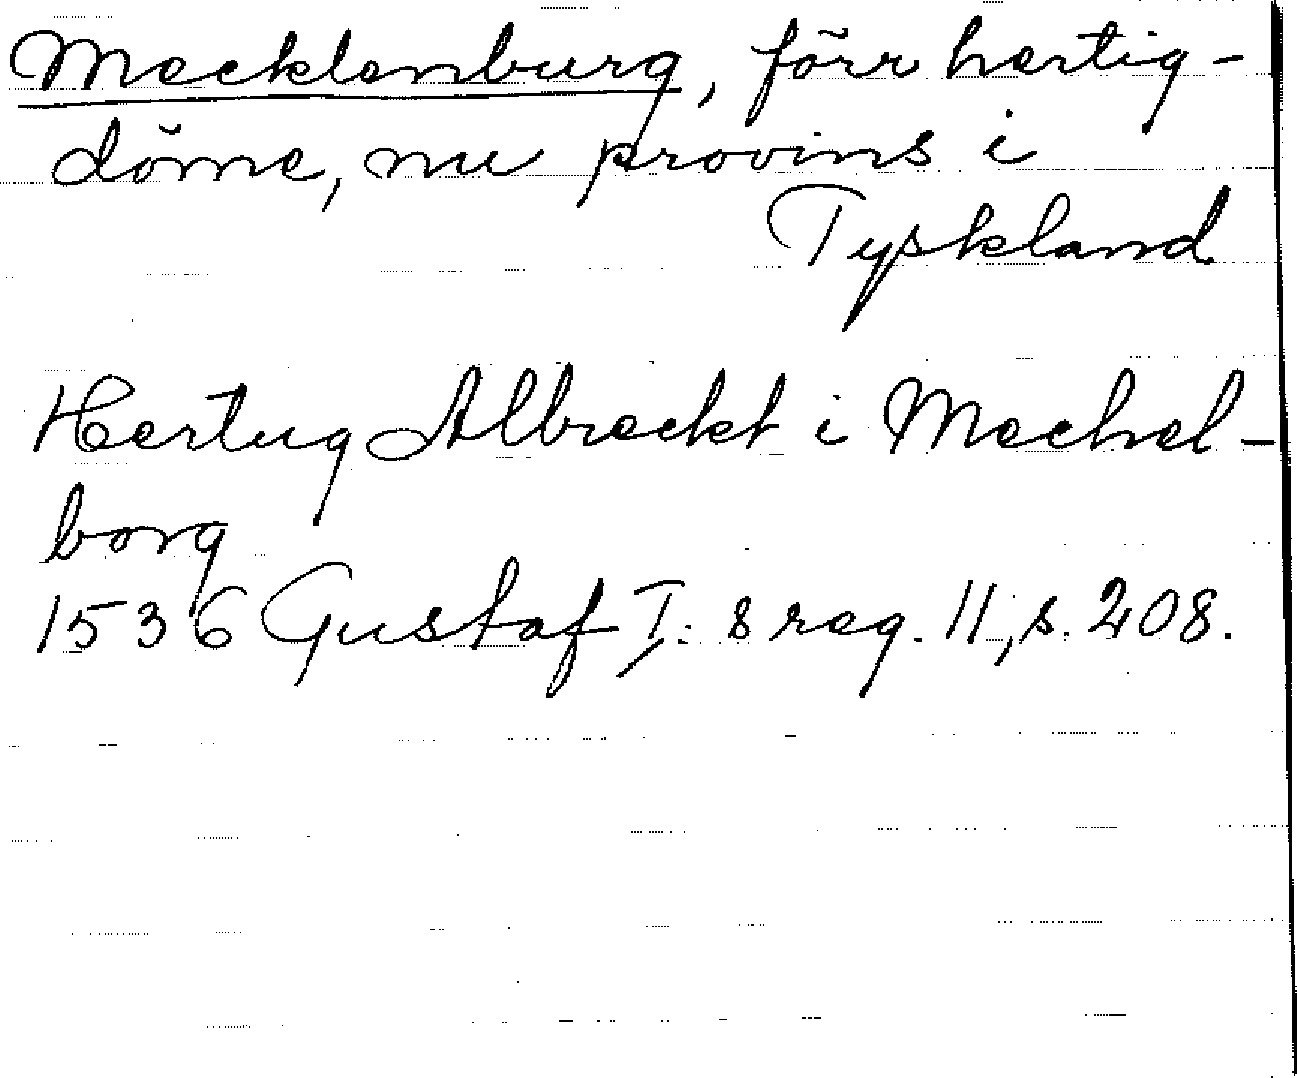 Mecklenburg, förr hertig-
döme, nu provins i
Tyskland
Hertug Albreckt i Mechel-
borg
1536 Gustaf I:s reg. 11, s. 208.